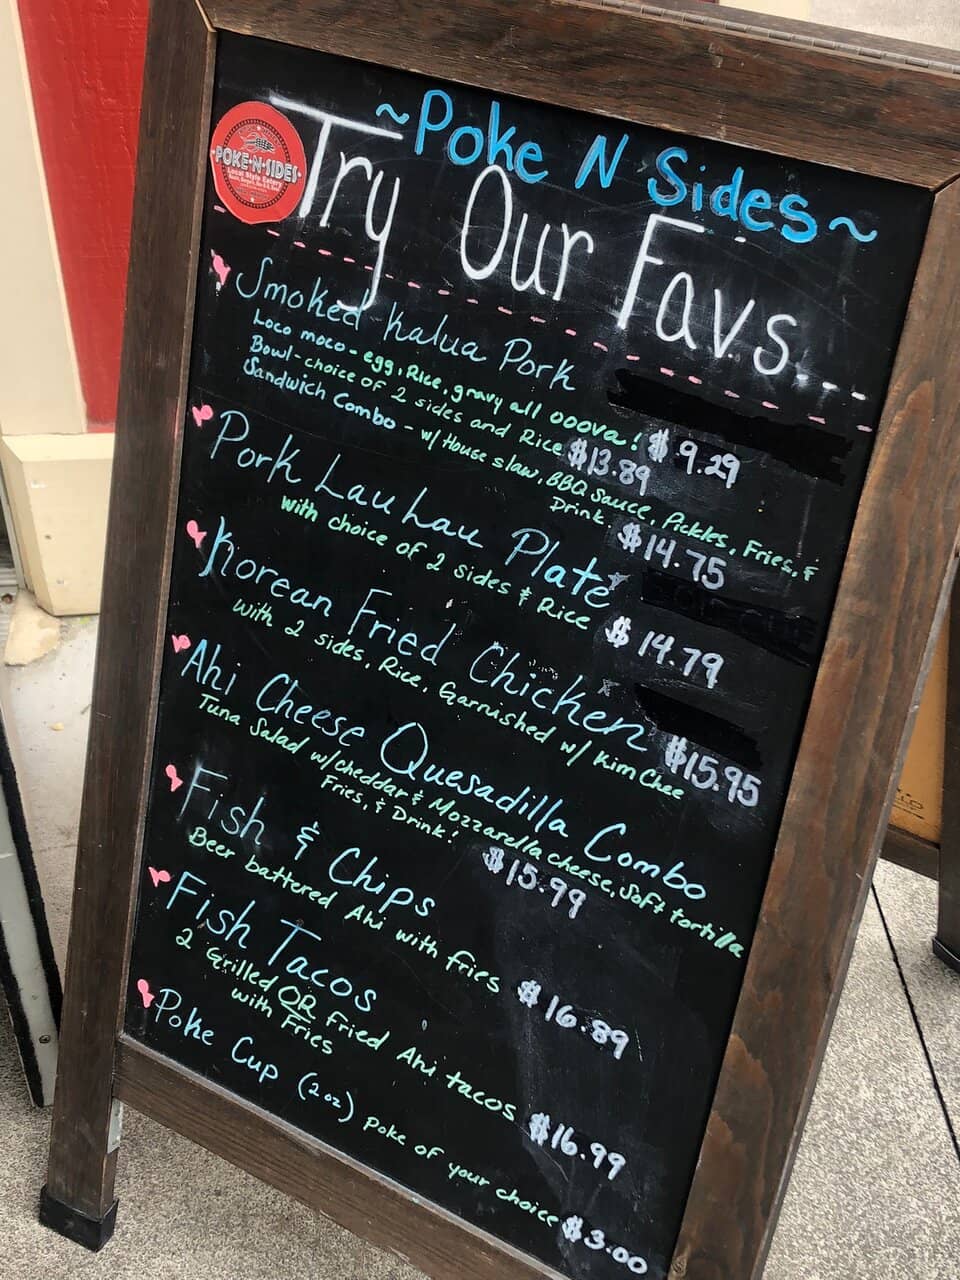 ~Poke N Sides~
POKE·N·SIDES
Local Style Eatery
Try Our Favs...
Smoked Kalua Pork
Loco moco - egg, Rice, gravy all ooova! $9.29
Bowl - choice of 2 sides and Rice $13.89
Sandwich Combo - w/ House slaw, BBQ Sauce, Pickles, Fries, &
Drink. $14.75
Pork Lau Lau Plate
with choice of 2 sides & Rice $14.79
Korean Fried Chicken
with 2 sides, Rice, Garnished w/ Kim Chee $15.95
Ahi Cheese Quesadilla Combo
Tuna Salad w/ cheddar & Mozzarella cheese, Soft tortilla
Fries, & Drink! $15.99
Fish & Chips
Beer battered Ahi with fries $16.89
Fish Tacos
2 Grilled OR Fried Ahi tacos
with Fries $16.99
Poke Cup (2 oz) poke of your choice $3.00